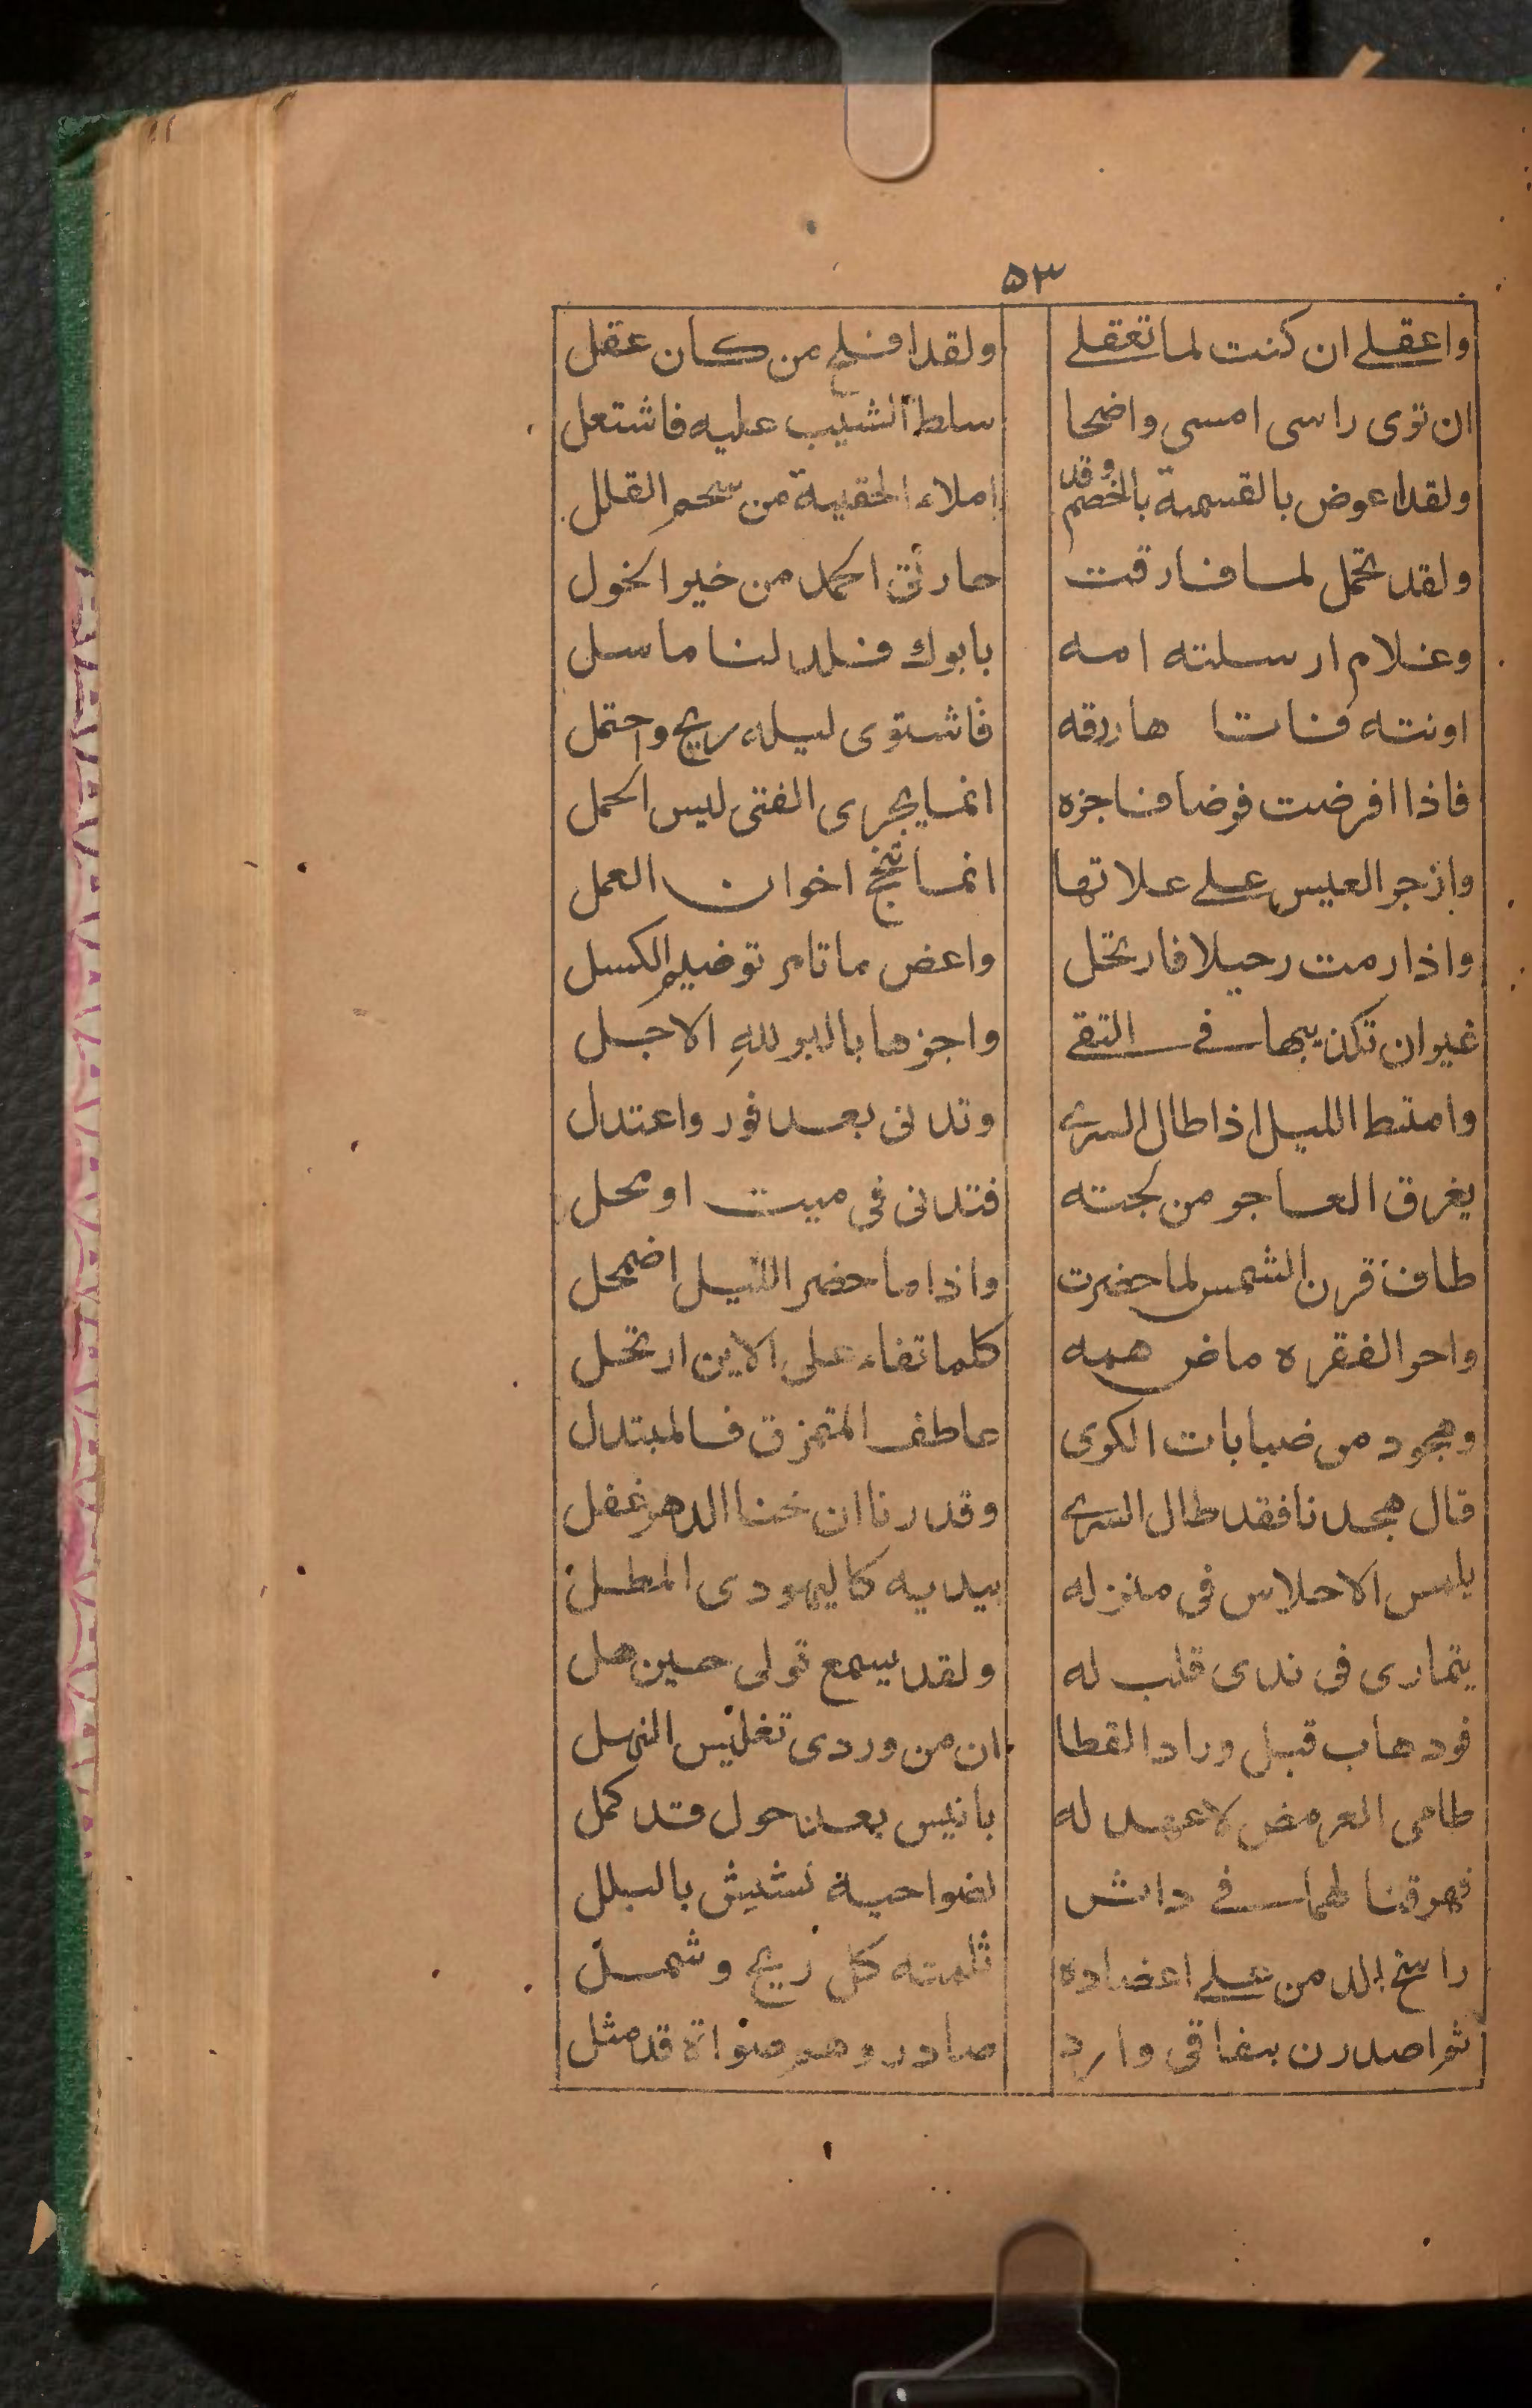 ٥٣
واعقلے ان كنت لما تعقلے ولقد افلح من كان عقل
ان ترى راسى امسى واضحا سلط الشيب عليه فاشتعل
ولقد اعوض بالقسمة بالخصم وقد املاء الحقيبة من شحم القلل
ولقد تحمل لما فارقت حارتى احمد من خير الخول
وغلام ارسلته امه بابوك فلد لنا ما سل
اونته فاتا هارزقه فاشتوى ليله ريح واحتمل
فاذا افرضت فرضا فاجزه انما يجرى الفتى ليس الحمل
وازجر العيس علے علاتها انما تنجح اخوان العمل
واذا رمت رحيلا فارتحل واعض ما تامر توضيم الكسل
غير ان تكذيبها فے التقے واجزها بالبر لله الاجل
وامتط الليل اذا طال السرے وتدنى بعد فور واعتدل
يغرق العاجر من لجته فتدنى فى ميت اومحل
طاف قرن الشمس لما حضرت واذا ما حضر الليل اضمحل
واحو الفقره ماض همه كلما تفاء على الاين ارتحل
وهجود من ضبابات الكرى عاطف المتمزق فالمبتدل
قال هجدنا فقد طال السرے وقدرنا ان خنا الدهر غفل
يلمس الاحلاس فى منزله بيديه كاليهودى المطل
يتمارى فى ندى قلب له ولقد يسمع قولى حين هل
فودهاب قبل وراد القطا ان من وردى تغليس النهل
طامى العرمض لا عهد له بانيس بعد حول قد كمل
فهرقنا لهما فے داثش لضواحية نشيش بالبلل
راسخ الدمن علے اعضاده ثلمته كل ريح وشمل
ثم اصدرن بنفاقى وارد صادر وهم صواة قد مثل